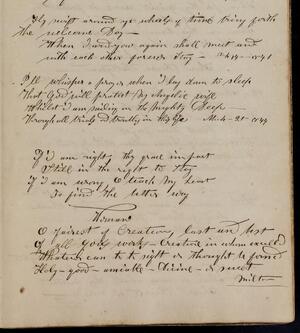 Fly swift around ye wheels of time & bring forth
the welcome Day—
When I and you again shall meet and
with each other forever Stay—
I'll whisper a prayer when I lay down to sleep
That God will protect my Angelic
Whilst I am sailing in the mighty Deep—
Through all trials and in this life
If I am right thy grace impart
Still in the right to Stay
If I am wrong O teach my heart
To find the better way
Woman
O fairest of Creation, last and best
Of all God's works—Creature in whom excelled
Whatever can to sight or thought be formed
Holy—good—amiable—divine—or sweet
Milton